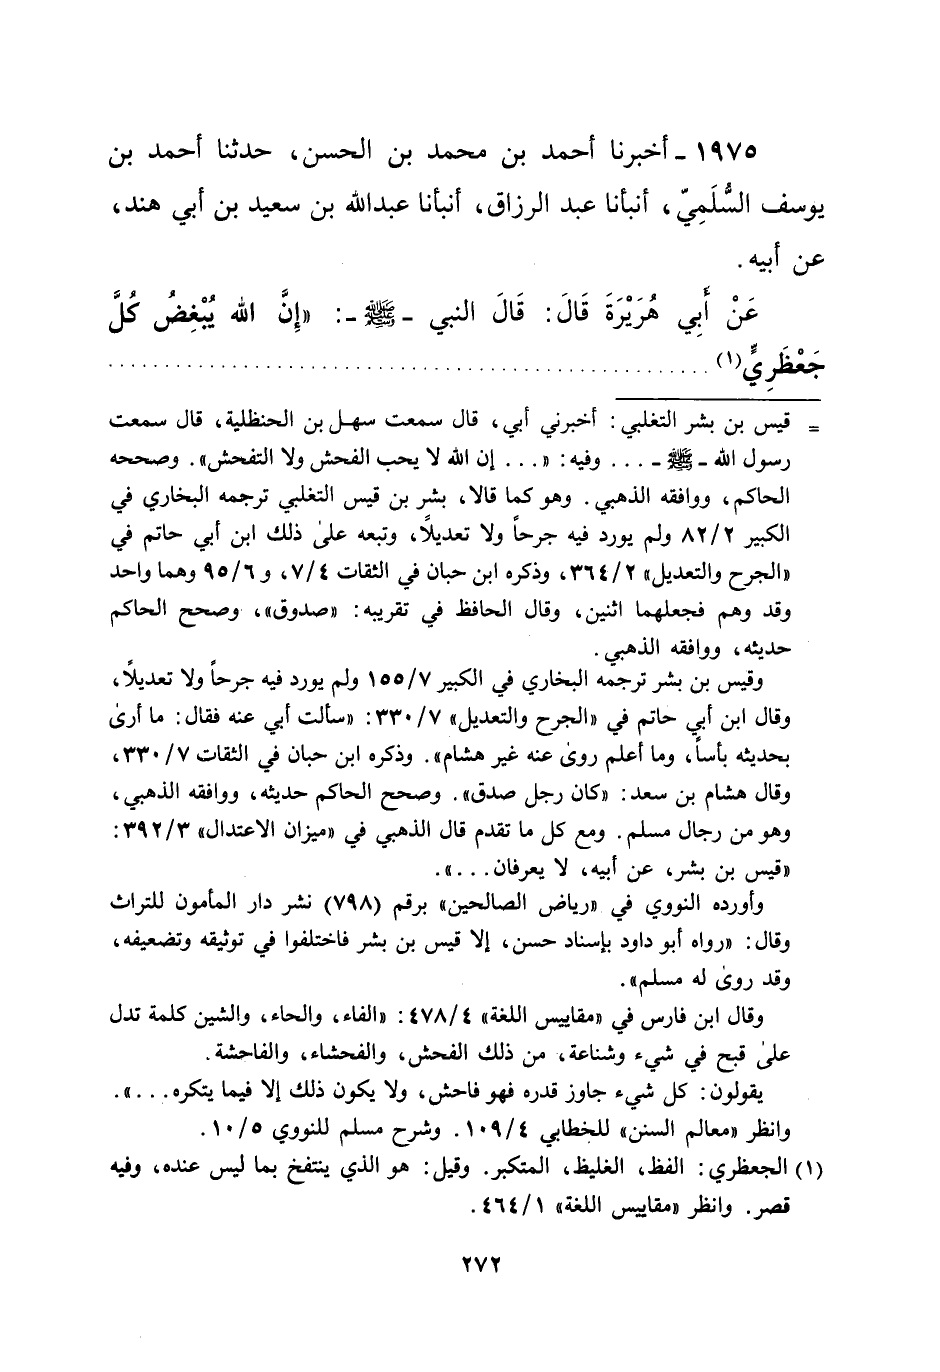 ١٩٧٥ ـ أخبرنا أحمد بن محمد بن الحسن، حدثنا أحمد بن
يوسف السُّلَمِيّ، أنبأنا عبد الرزاق، أنبأنا عبدالله بن سعيد بن أبي هند،
عن أبيه.
عَنْ أَبِي هُرَيْرَةَ قَالَ: قَالَ النبي ـ ﷺ ـ: «إِنَّ الله يُبْغِضُ كُلَّ
جَعْظَرِيٍّ(١) ........................................................
= قيس بن بشر التغلبي: أخبرني أبي، قال سمعت سهل بن الحنظلية، قال سمعت
رسول الله ـ ﷺ ـ ... وفيه: «... إن الله لا يحب الفحش ولا التفحش». وصححه
الحاكم، ووافقه الذهبي. وهو كما قالا، بشر بن قيس التغلبي ترجمه البخاري في
الكبير ٨٢/٢ ولم يورد فيه جرحاً ولا تعديلًا، وتبعه علىٰ ذلك ابن أبي حاتم في
«الجرح والتعديل» ٣٦٤/٢، وذكره ابن حبان في الثقات ٧/٤، و ٩٥/٦ وهما واحد
وقد وهم فجعلهما اثنين، وقال الحافظ في تقريبه: «صدوق»، وصحح الحاكم
حديثه، ووافقه الذهبي.
وقيس بن بشر ترجمه البخاري في الكبير ١٥٥/٧ ولم يورد فيه جرحاً ولا تعديلًا،
وقال ابن أبي حاتم في «الجرح والتعديل» ٣٣٠/٧: «سألت أبي عنه فقال: ما أرىٰ
بحديثه بأساً، وما أعلم روىٰ عنه غير هشام». وذكره ابن حبان في الثقات ٣٣٠/٧،
وقال هشام بن سعد: «كان رجل صدق». وصحح الحاكم حديثه، ووافقه الذهبي،
وهو من رجال مسلم. ومع كل ما تقدم قال الذهبي في «ميزان الاعتدال» ٣٩٢/٣:
«قيس بن بشر، عن أبيه، لا يعرفان...».
وأورده النووي في «رياض الصالحين» برقم (٧٩٨) نشر دار المأمون للتراث
وقال: «رواه أبو داود بإسناد حسن، إلا قيس بن بشر فاختلفوا في توثيقه وتضعيفه،
وقد روىٰ له مسلم».
وقال ابن فارس في «مقاييس اللغة» ٤٧٨/٤: «الفاء، والحاء، والشين كلمة تدل
علىٰ قبح في شيء وشناعة، من ذلك الفحش، والفحشاء، والفاحشة.
يقولون: كل شيء جاوز قدره فهو فاحش، ولا يكون ذلك إلا فيما يتكره...».
وانظر «معالم السنن» للخطابي ١٠٩/٤. وشرح مسلم للنووي ١٠/٥.
(١) الجعظري: الفظ، الغليظ، المتكبر. وقيل: هو الذي ينتفخ بما ليس عنده، وفيه
قصر. وانظر «مقاييس اللغة» ٤٦٤/١.
٢٧٢